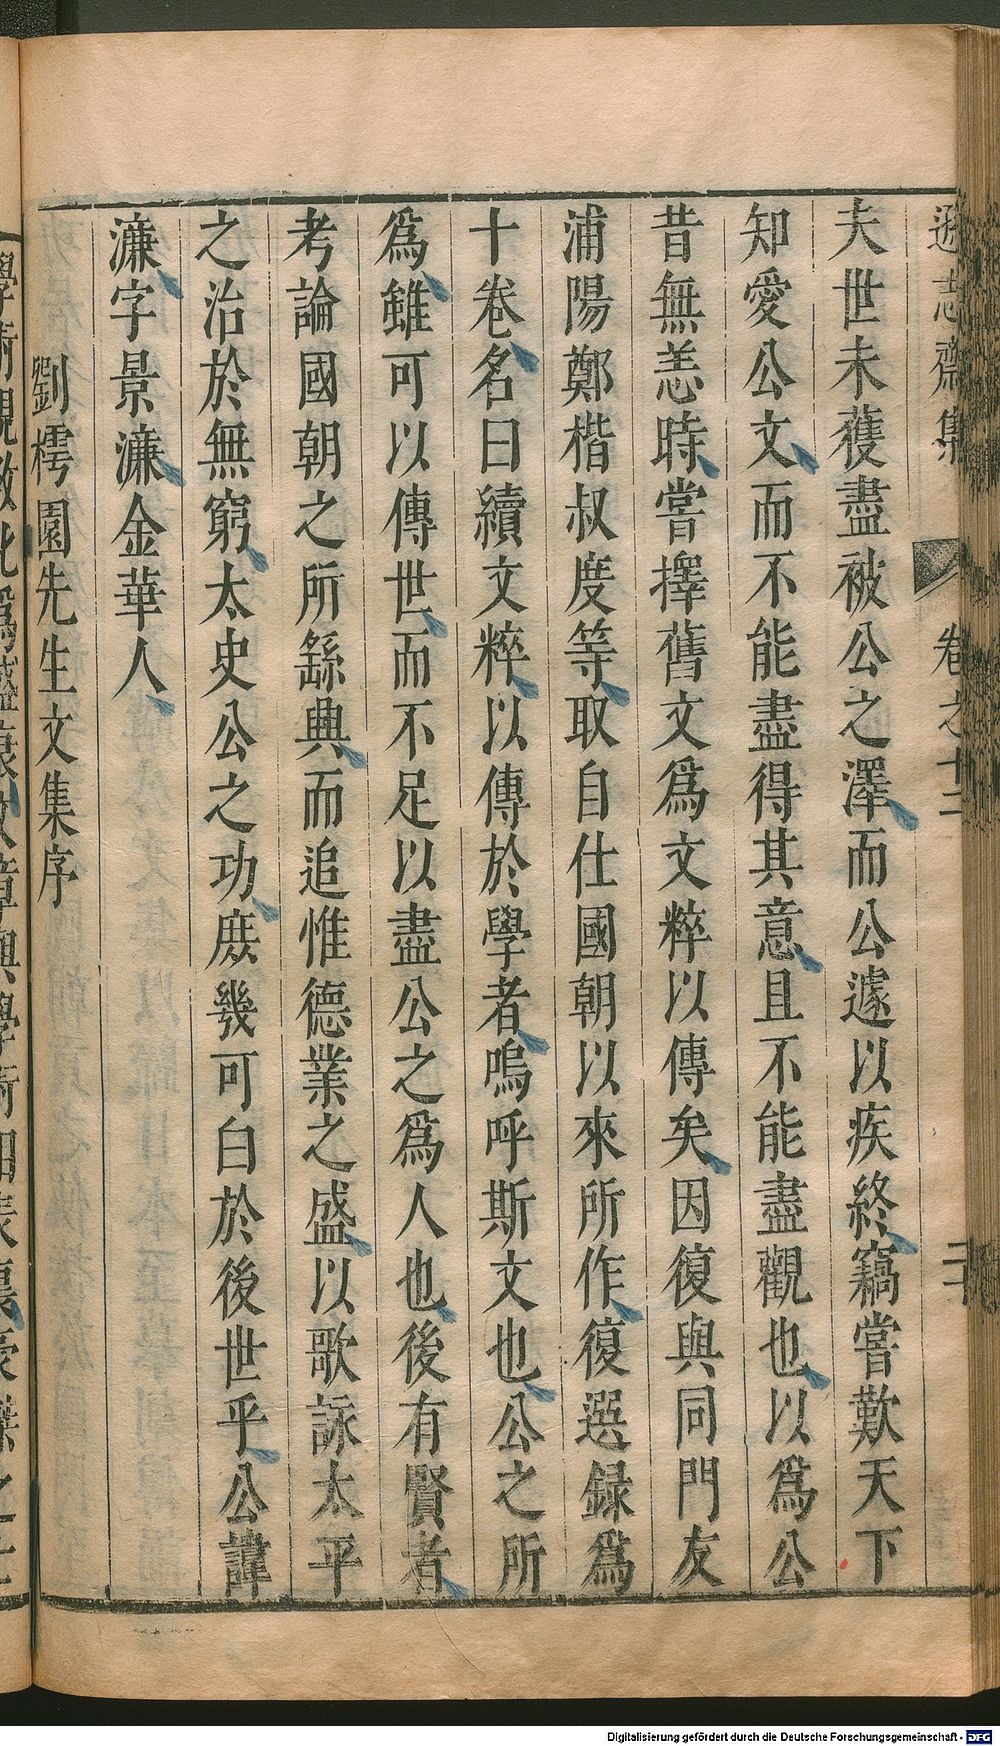 遜志齋集 卷之十二 二十
夫世未獲盡被公之澤而公遽以疾終竊嘗歎天下
知愛公文而不能盡得其意且不能盡觀也以爲公
昔無恙時嘗擇舊文爲文粹以傳矣因復與同門友
浦陽鄭楷叔度等取自仕國朝以來所作復選録爲
十卷名曰續文粹以傳於學者嗚呼斯文也公之所
爲雖可以傳世而不足以盡公之爲人也後有賢者
考論國朝之所繇興而追惟德業之盛以歌詠太平
之治於無窮太史公之功庶幾可白於後世乎公諱
濂字景濂金華人
劉樗園先生文集序
Digitalisierung gefördert durch die Deutsche Forschungsgemeinschaft - DFG